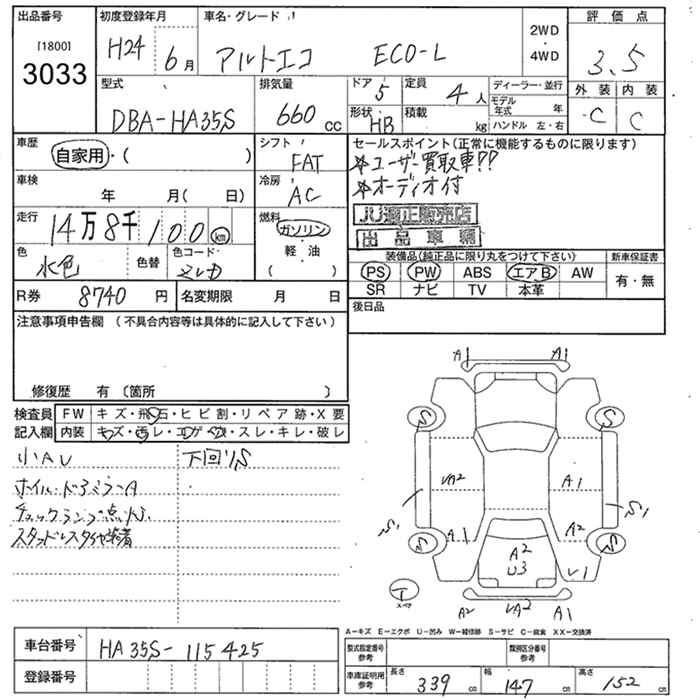 出品番号 初度登録年月 車名・グレード 評価点
[1800] 3033 H24 6月 アルトエコ ECO-L 2WD・4WD 3.5
型式 排気量 ドア 5 定員 4人 ディーラー・並行 外装 内装
DBA-HA35S 660cc 形状 HB 積載 kg モデル年式 年 C C
ハンドル 左・右
車歴 自家用・( ) シフト FAT セールスポイント(正常に機能するものに限ります)
*ユーザー買取車!!
車検 年 月( 日) 冷房 AC *オーディオ付
走行 14万8千100km 燃料 ガソリン・軽油 ( ) JU適正販売店
出品車輌
色 水色 色替 色コード
装備品(純正品に限り丸をつけて下さい) 新車保証書
PS PW ABS エアB AW 有・無
R券 8740円 名変期限 月 日 SR ナビ TV 本革
注意事項申告欄 (不具合内容等は具体的に記入して下さい) 後日品
修復歴 有 〔箇所 〕
A1 A1
検査員 FW キズ・飛石・ヒビ割・リペア跡・X要
記入欄 内装 キズ・汚レ・コゲ穴・スレ・キレ・破レ
S S
小AU 下回りS
ホイル・ドアミラーA
チェックランプ点灯
スタッドレスタイヤ装着
A2 A1
S1 A1 A2 S1
S A2 U3 S
V1
T スペア
A2 A1
A-キズ E-エクボ U-凹み W-補修跡 S-サビ C-腐食 XX-交換済
車台番号 HA35S-115425
型式指定番号 参考 類別区分番号 参考
登録番号
車庫証明用 参考 長さ 339cm 幅 147cm 高さ 152cm